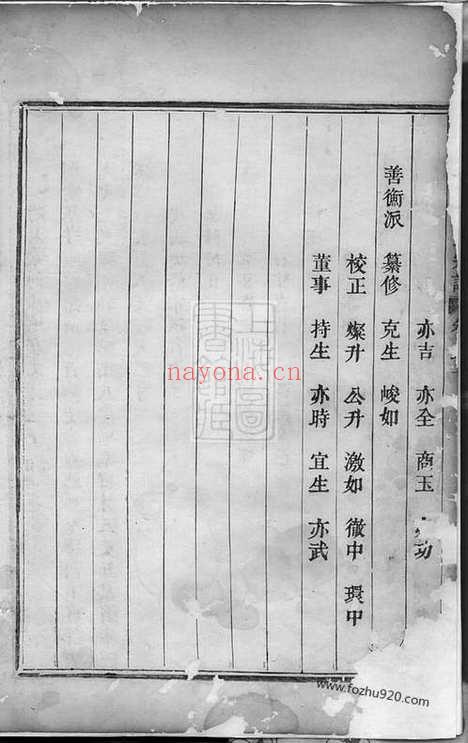 亦吉 亦全 商玉 功
善衡派 纂修 克生 峻如
校正 燦升 公升 激如 徹中 環中
董事 持生 亦時 宜生 亦武
nayona.cn
www.fozhu920.com